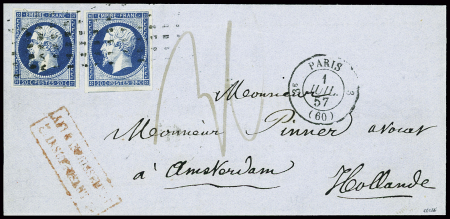 EMPIRE FRANC. EMPIRE FRANC.
20 C. POSTES 20 C. 20 C. POSTES 20 C.
PARIS
1
JUIL.
57
(60)
Monsieur
Monsieur Pinner avocat
à Amsterdam
Hollande